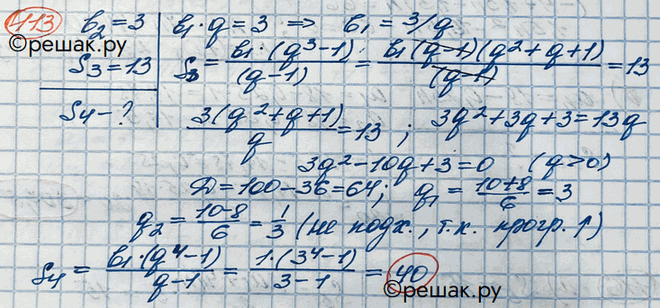 413 b₂ = 3 | b₁·q = 3 ⇒ b₁ = 3/q
©решак.ру
S₃ = 13 | S₃ = b₁·(q³-1)/(q-1) = b₁(q-1)(q²+q+1)/(q-1) = 13
S₄ - ? | 3(q²+q+1)/q = 13 ; 3q²+3q+3 = 13q
3q²-10q+3 = 0 (q>0)
D = 100-36 = 64; q₁ = (10+8)/6 = 3
q₂ = (10-8)/6 = 1/3 (не подх., т.к. прогр. ↑)
S₄ = b₁·(q⁴-1)/(q-1) = 1·(3⁴-1)/(3-1) = 40
©решак.ру